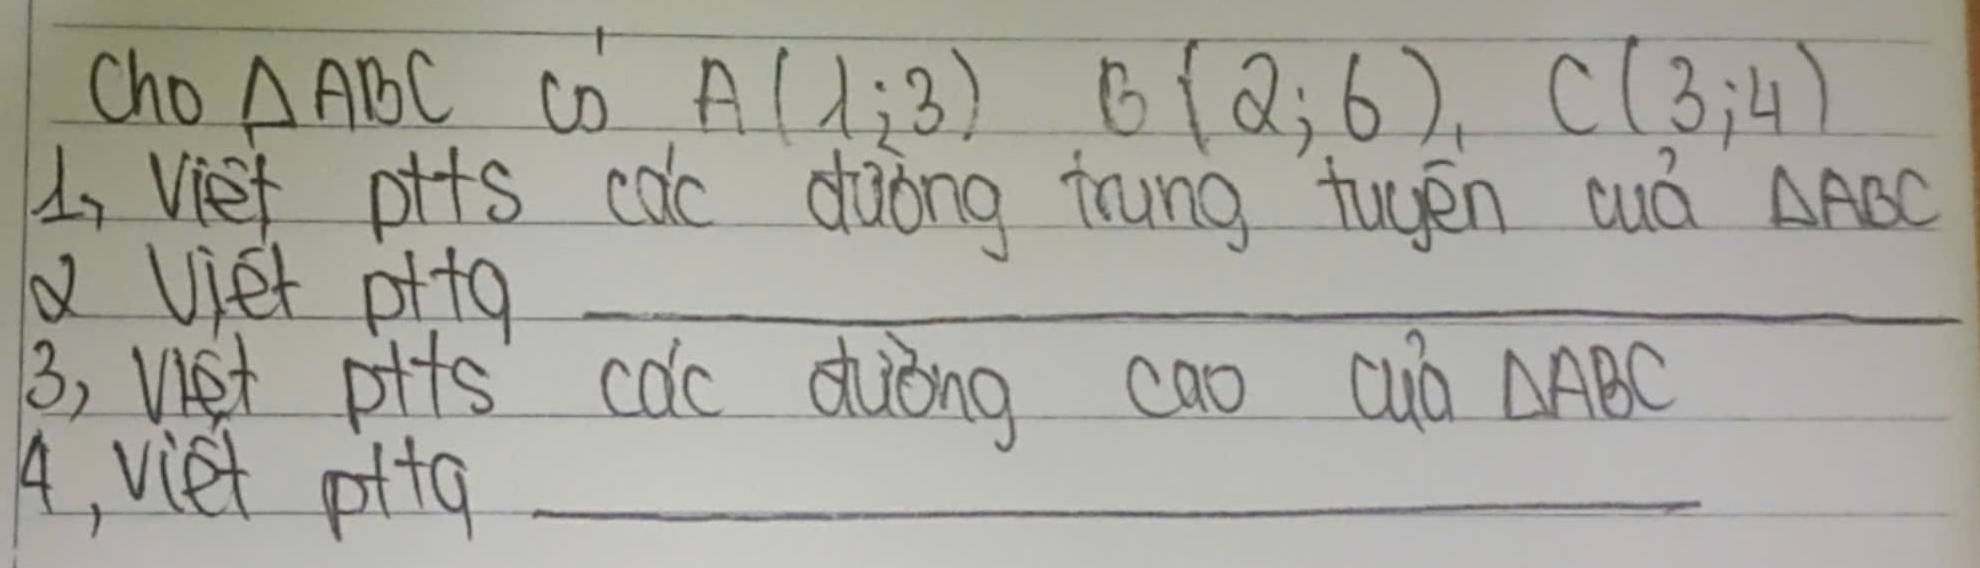 Cho ΔABC có A(1;3) B(2;6), C(3;4)
1, Viết ptts các đường trung tuyến cuả ΔABC
2 Viết pttq ________
3, Viết ptts các đường cao cuả ΔABC
4, Viết pttq ________